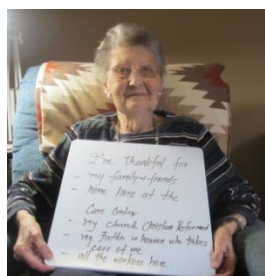 I'm thankful for
- my family & friends
- home here at the
Care Center
- my church Christian Reformed
- my Father in heaven who takes
care of me
- all the workers here